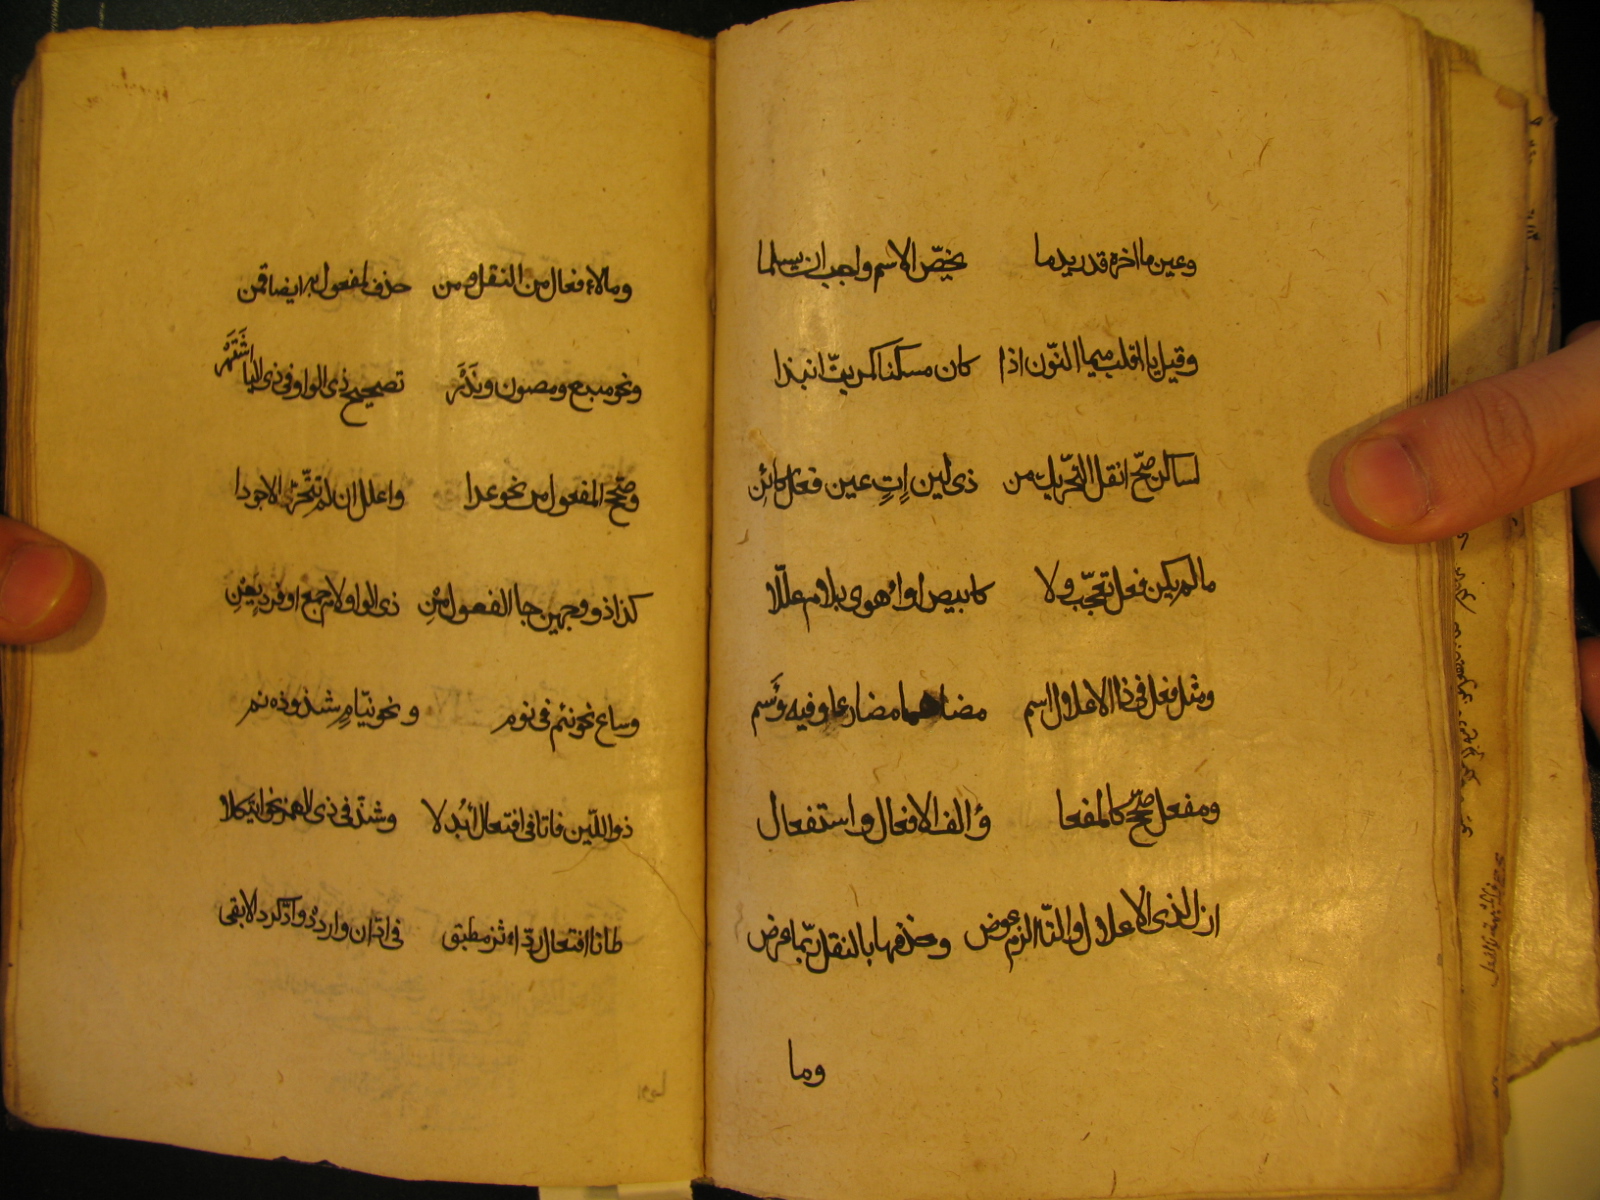 وعين ما اخره قد زيد ما يخصّ الاسم واجب ان يسلما
وقبل با اقلب ميما النّون اذا كان مسكنا كمن بتّ انبذا
لساكن صحّ انقل التّحريك من ذي لين اتٍ عين فعل كائن
ما لم يكن فعل تعجّب ولا كابيض او اهوى بلام علّلا
ومثل فعل في ذا الاعلال اسم مضاهما مضارعا وفيه وَسم
ومفعل صحّح كالمفعا وألف الافعال واستفعال
ازل لذي الاعلال والتّا الزم عوض وحذفها بالنقل ربّما عرض
وما
وما لافعال من النقل ومن حذف لمفعول به ايضا قمن
ونحو مبيع ومصون ونَدَر تصحيح ذي الواو وفي ذي اليا اشتَهَر
وصحّح المفعول من نحو عدا واعلل ان لم تتحّرّ الاجودا
كذا ذو وجهين جا الفعول من ذي الواو لام جمع او فرد يعن
وساع نحو نيّم في نوم ونحو نيّام شذوذه نم
ذو اللّين فا تا في افتعال أبُدلا وشذّ في ذي الهمز نحو ايتكلا
طا تا افتعال ردّ اثر مطبق في ادّان وازدد وادّكر دالا بقى